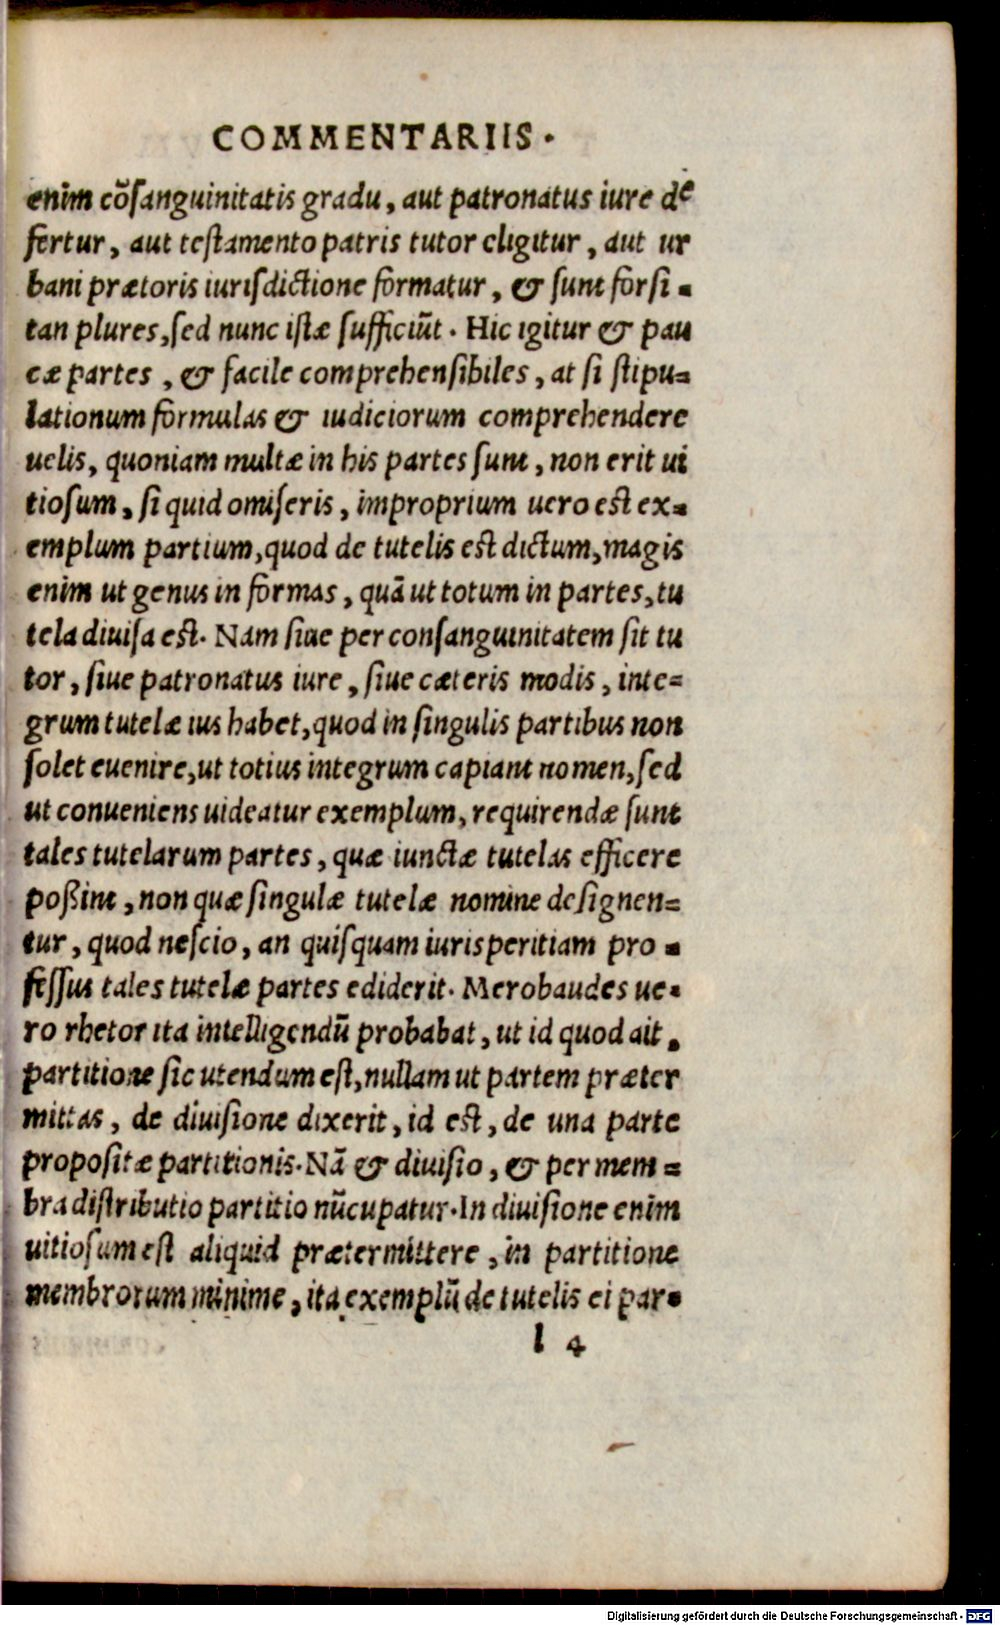 COMMENTARIIS.
enim cõsanguinitatis gradu, aut patronatus iure de
fertur, aut testamento patris tutor eligitur, aut ur
bani prætoris iurisdictione formatur, & sunt forsi-
tan plures, sed nunc istæ sufficiũt. Hic igitur & pau
cæ partes, & facile comprehensibiles, at si stipu-
lationum formulas & iudiciorum comprehendere
uelis, quoniam multæ in his partes sunt, non erit ui
tiosum, si quid omiseris, improprium uero est ex-
emplum partium, quod de tutelis est dictum, magis
enim ut genus in formas, quã ut totum in partes, tu
tela diuisa est. Nam siue per consanguinitatem sit tu
tor, siue patronatus iure, siue cæteris modis, inte-
grum tutelæ ius habet, quod in singulis partibus non
solet euenire, ut totius integrum capiant nomen, sed
ut conueniens uideatur exemplum, requirendæ sunt
tales tutelarum partes, quæ iunctæ tutelas efficere
poßint, non quæ singulæ tutelæ nomine designen-
tur, quod nescio, an quisquam iurisperitiam pro-
fessus tales tutelæ partes ediderit. Merobaudes ue-
ro rhetor ita intelligendũ probabat, ut id quod ait,
partitione sic utendum est, nullam ut partem præter
mittas, de diuisione dixerit, id est, de una parte
propositæ partitionis. Nã & diuisio, & per mem-
bra distributio partitio nũcupatur. In diuisione enim
uitiosum est aliquid prætermittere, in partitione
membrorum minime, ita exemplũ de tutelis ei par-
l 4
Digitalisierung gefördert durch die Deutsche Forschungsgemeinschaft - DFG